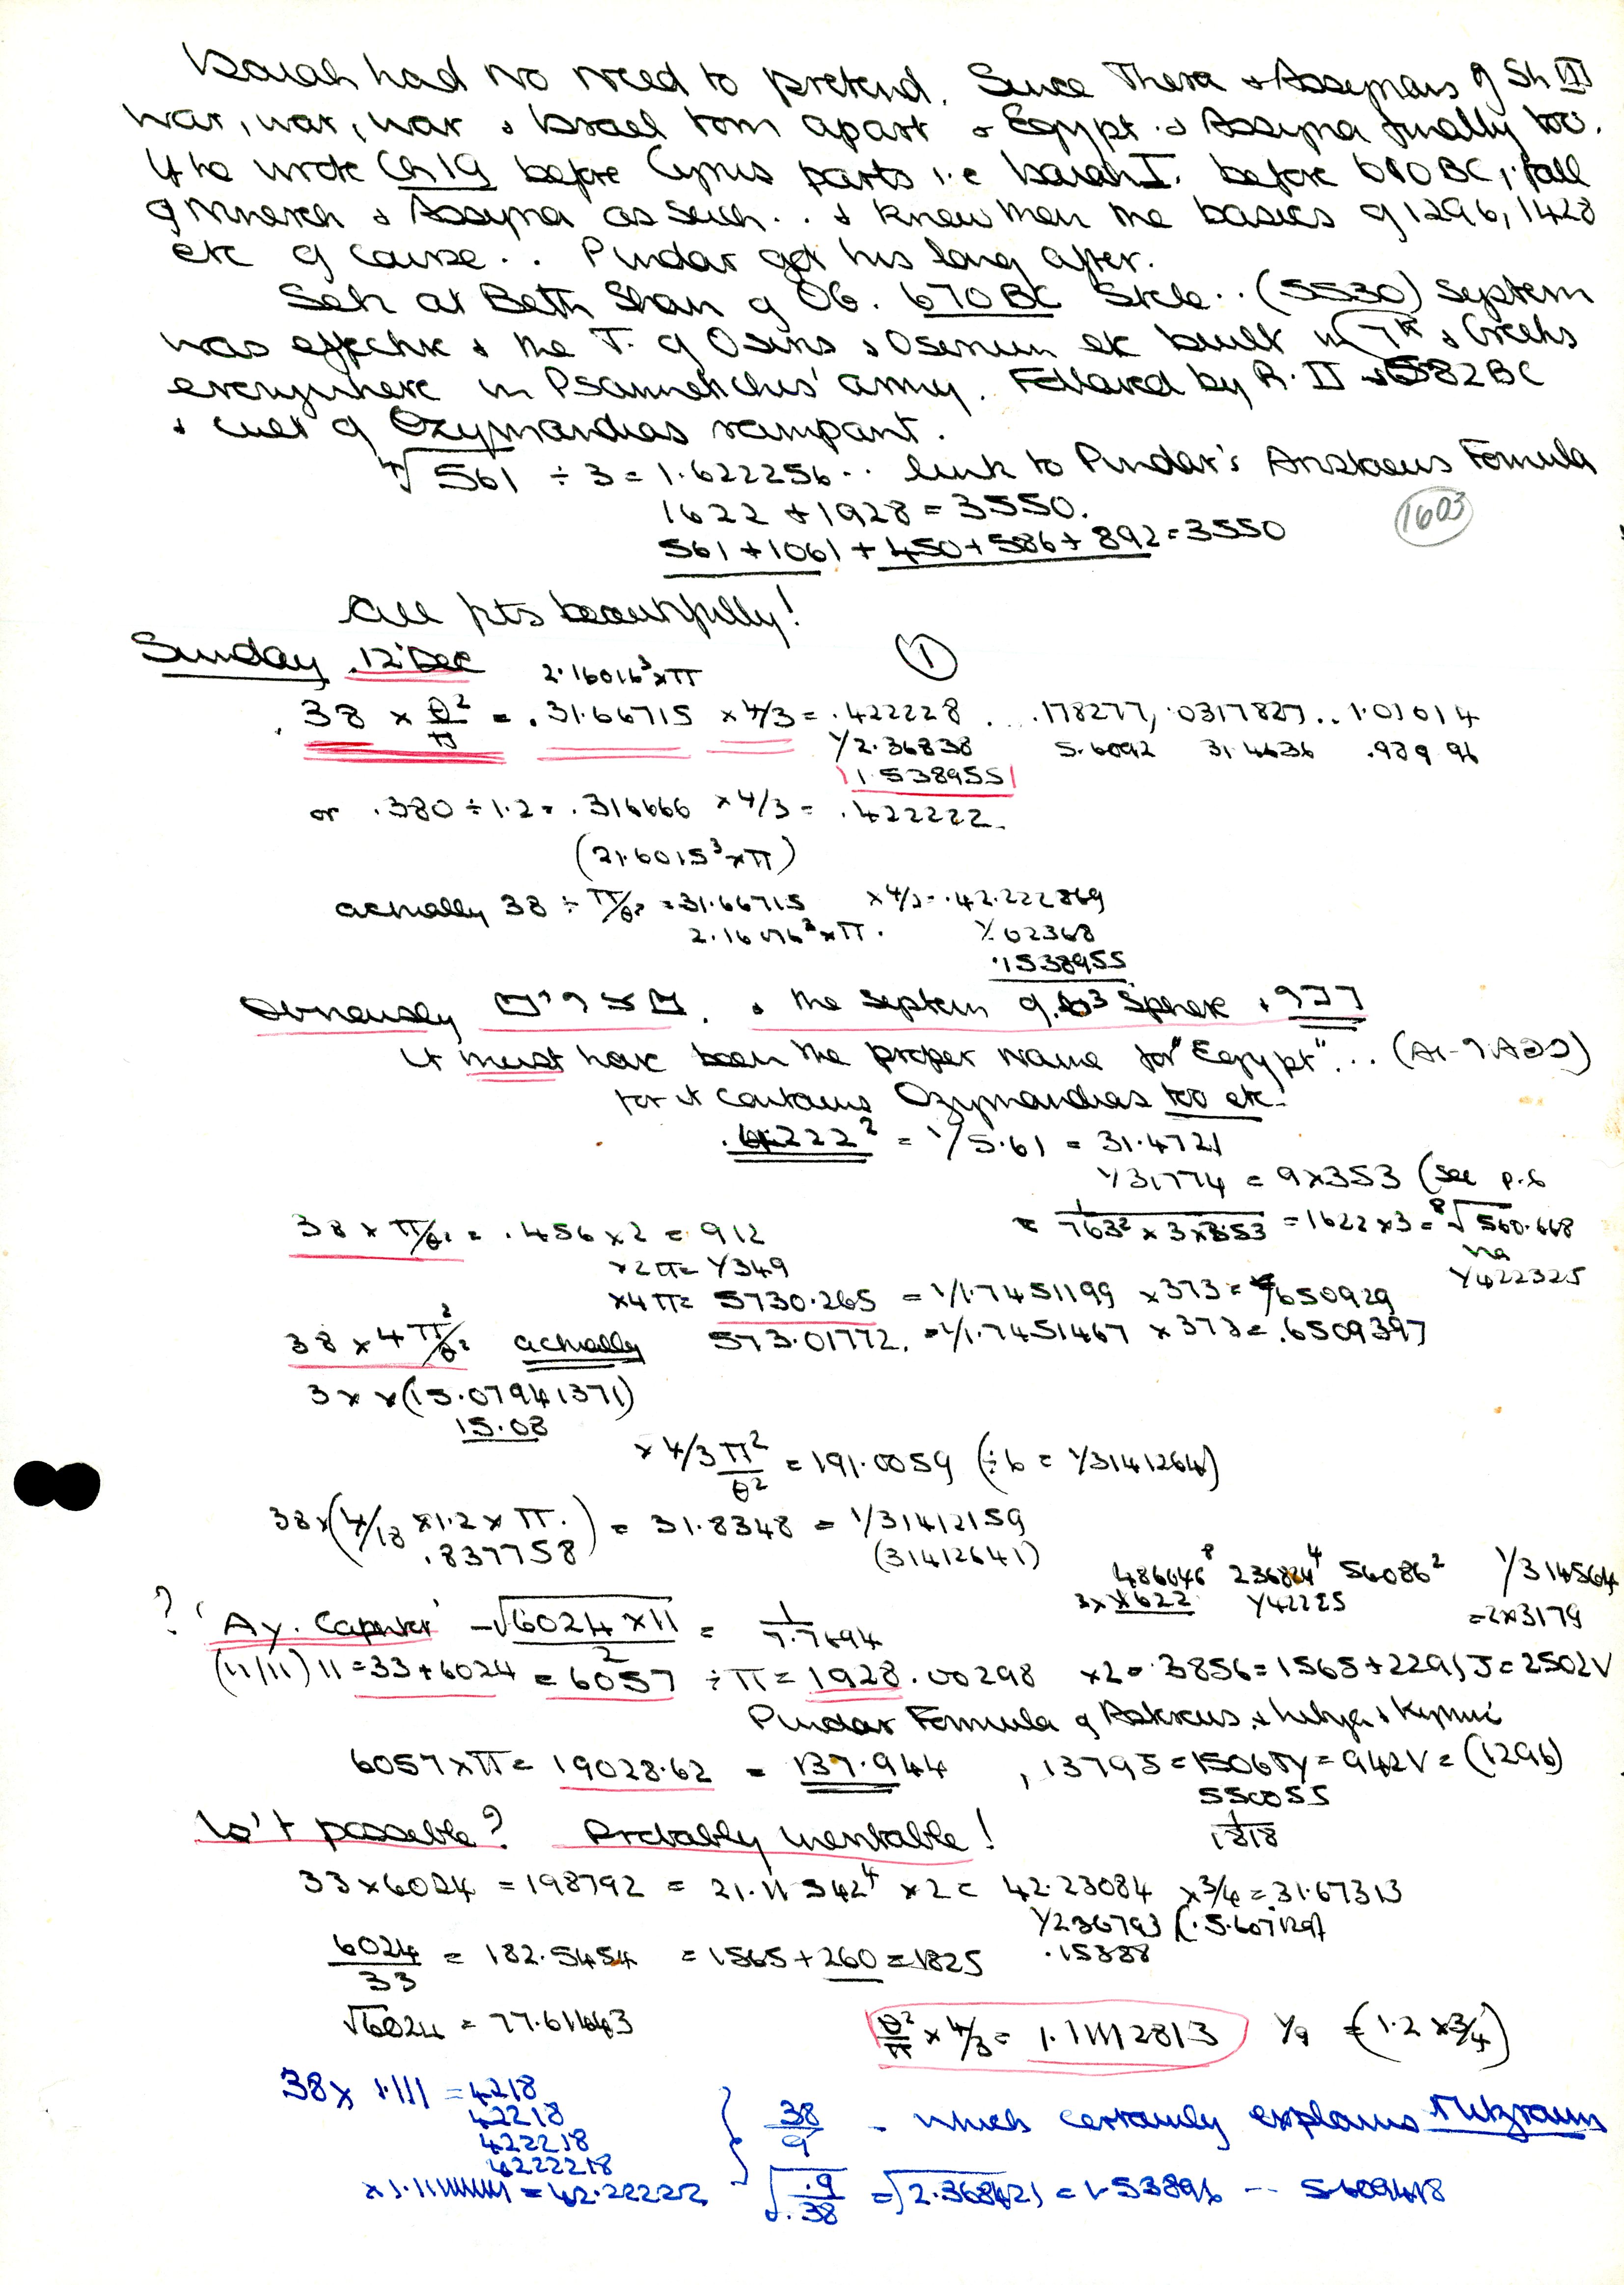 Isaiah had no need to pretend. Since Thera & Assyrians of Sh III
war, war, war & Israel torn apart & Egypt & Assyria finally too.
If he wrote Ch 19 before Cyrus parts i.e Isaiah I. before 680 BC, fall
of Nineveh & Assyria as such.. & knew then the basics of 1296, 1428
etc of course.. Pindar got his long after.
Seti at Beth Shan g OG. 670 BC Stele.. (5530) system
was effective & the T. of Osiris & Osireum etc built in 7th & Greeks
everywhere in Psammetichus' army. Followed by R. II 582 BC
& cult of Ozymandias rampant.
4√561 ÷ 3 = 1.622256.. link to Pindar's Aristaeus Formula
1622 + 1928 = 3550.
1603
561 + 1061 + 450 + 586 + 892 = 3550
All fits beautifully!
Sunday 12 Dec
①
2.16016³ x π
.38 x θ²/π = .3166715 x 4/3 = .422228 . . .178277, .0317827.. 1.01014
1/2.36838 5.6092 31.4636 .98996
1.538955
or .380 ÷ 1.2 = .316666 x 4/3 = .422222
(21.6015³ x π)
actually 38 ÷ π/θ² = 31.66715 x 4/3 = .42.222869
2.16016³ x π. 1/.02368
.1538955
Obviously & the system of Sphere &
It must have been the proper name for "Egypt"...
for it contains Ozymandias too etc.
222² = 1/5.61 = 31.4721
1/31774 = 9 x 353 (see p.6
38 x π/θ² = .456 x 2 = 912
= 1/763² x 3 x 353 = 1622 x 3 = 8√560.668
x 2π = 1/349
1/422325
x 4π = 5730.265 = 1/1.7451199 x 373 = 650929
38 x 4 π²/θ² actually 573.01772. = 1/1.7451467 x 373 = .6509397
3 x x (15.07941371)
15.08
x 4/3 π²/θ² = 191.0059 (÷ 6 = 1/3141264)
38 x (4/18 x 1.2 x π.) = 31.8348 = 1/31412159
.837758 (31412641)
486646⁸ 236824⁴ 56086² 1/314564
3 x 1622 1/42225 = 2 x 3179
? 'Ay. - √6024 x 11 = 1/7.7694
(11/11) 11 = 33 + 6024 = 6057 ÷ π = 1928.00298 x 2 = .3856 = 1565 + 2291 J = 2502 V
Pindar Formula of & Libya &
6057 x π = 19028.62 = 137.944 , 1379 J = 1506 = 942 V = (1296)
550055
1/1818
Isn't possible? Probably inevitable!
33 x 6024 = 198792 = 21.11542⁴ x 2 = 42.23084 x 3/4 = 31.67313
1/236793 (.5.607129)
.15388
6024/33 = 182.5454 = 1565 + 260 = 1825
√6024 = 77.61443
θ²/π x 4/3 = 1.11112813 1/9 = (1.2 x 3/4)
38 x 1.111 = 4218
42218
422218
4222218
x 1.11111111 = 42.22222
} 38/9 - which certainly explains Mitzraim
√.9/.38 = √2.368421 = 1.53896 -- 5.609418